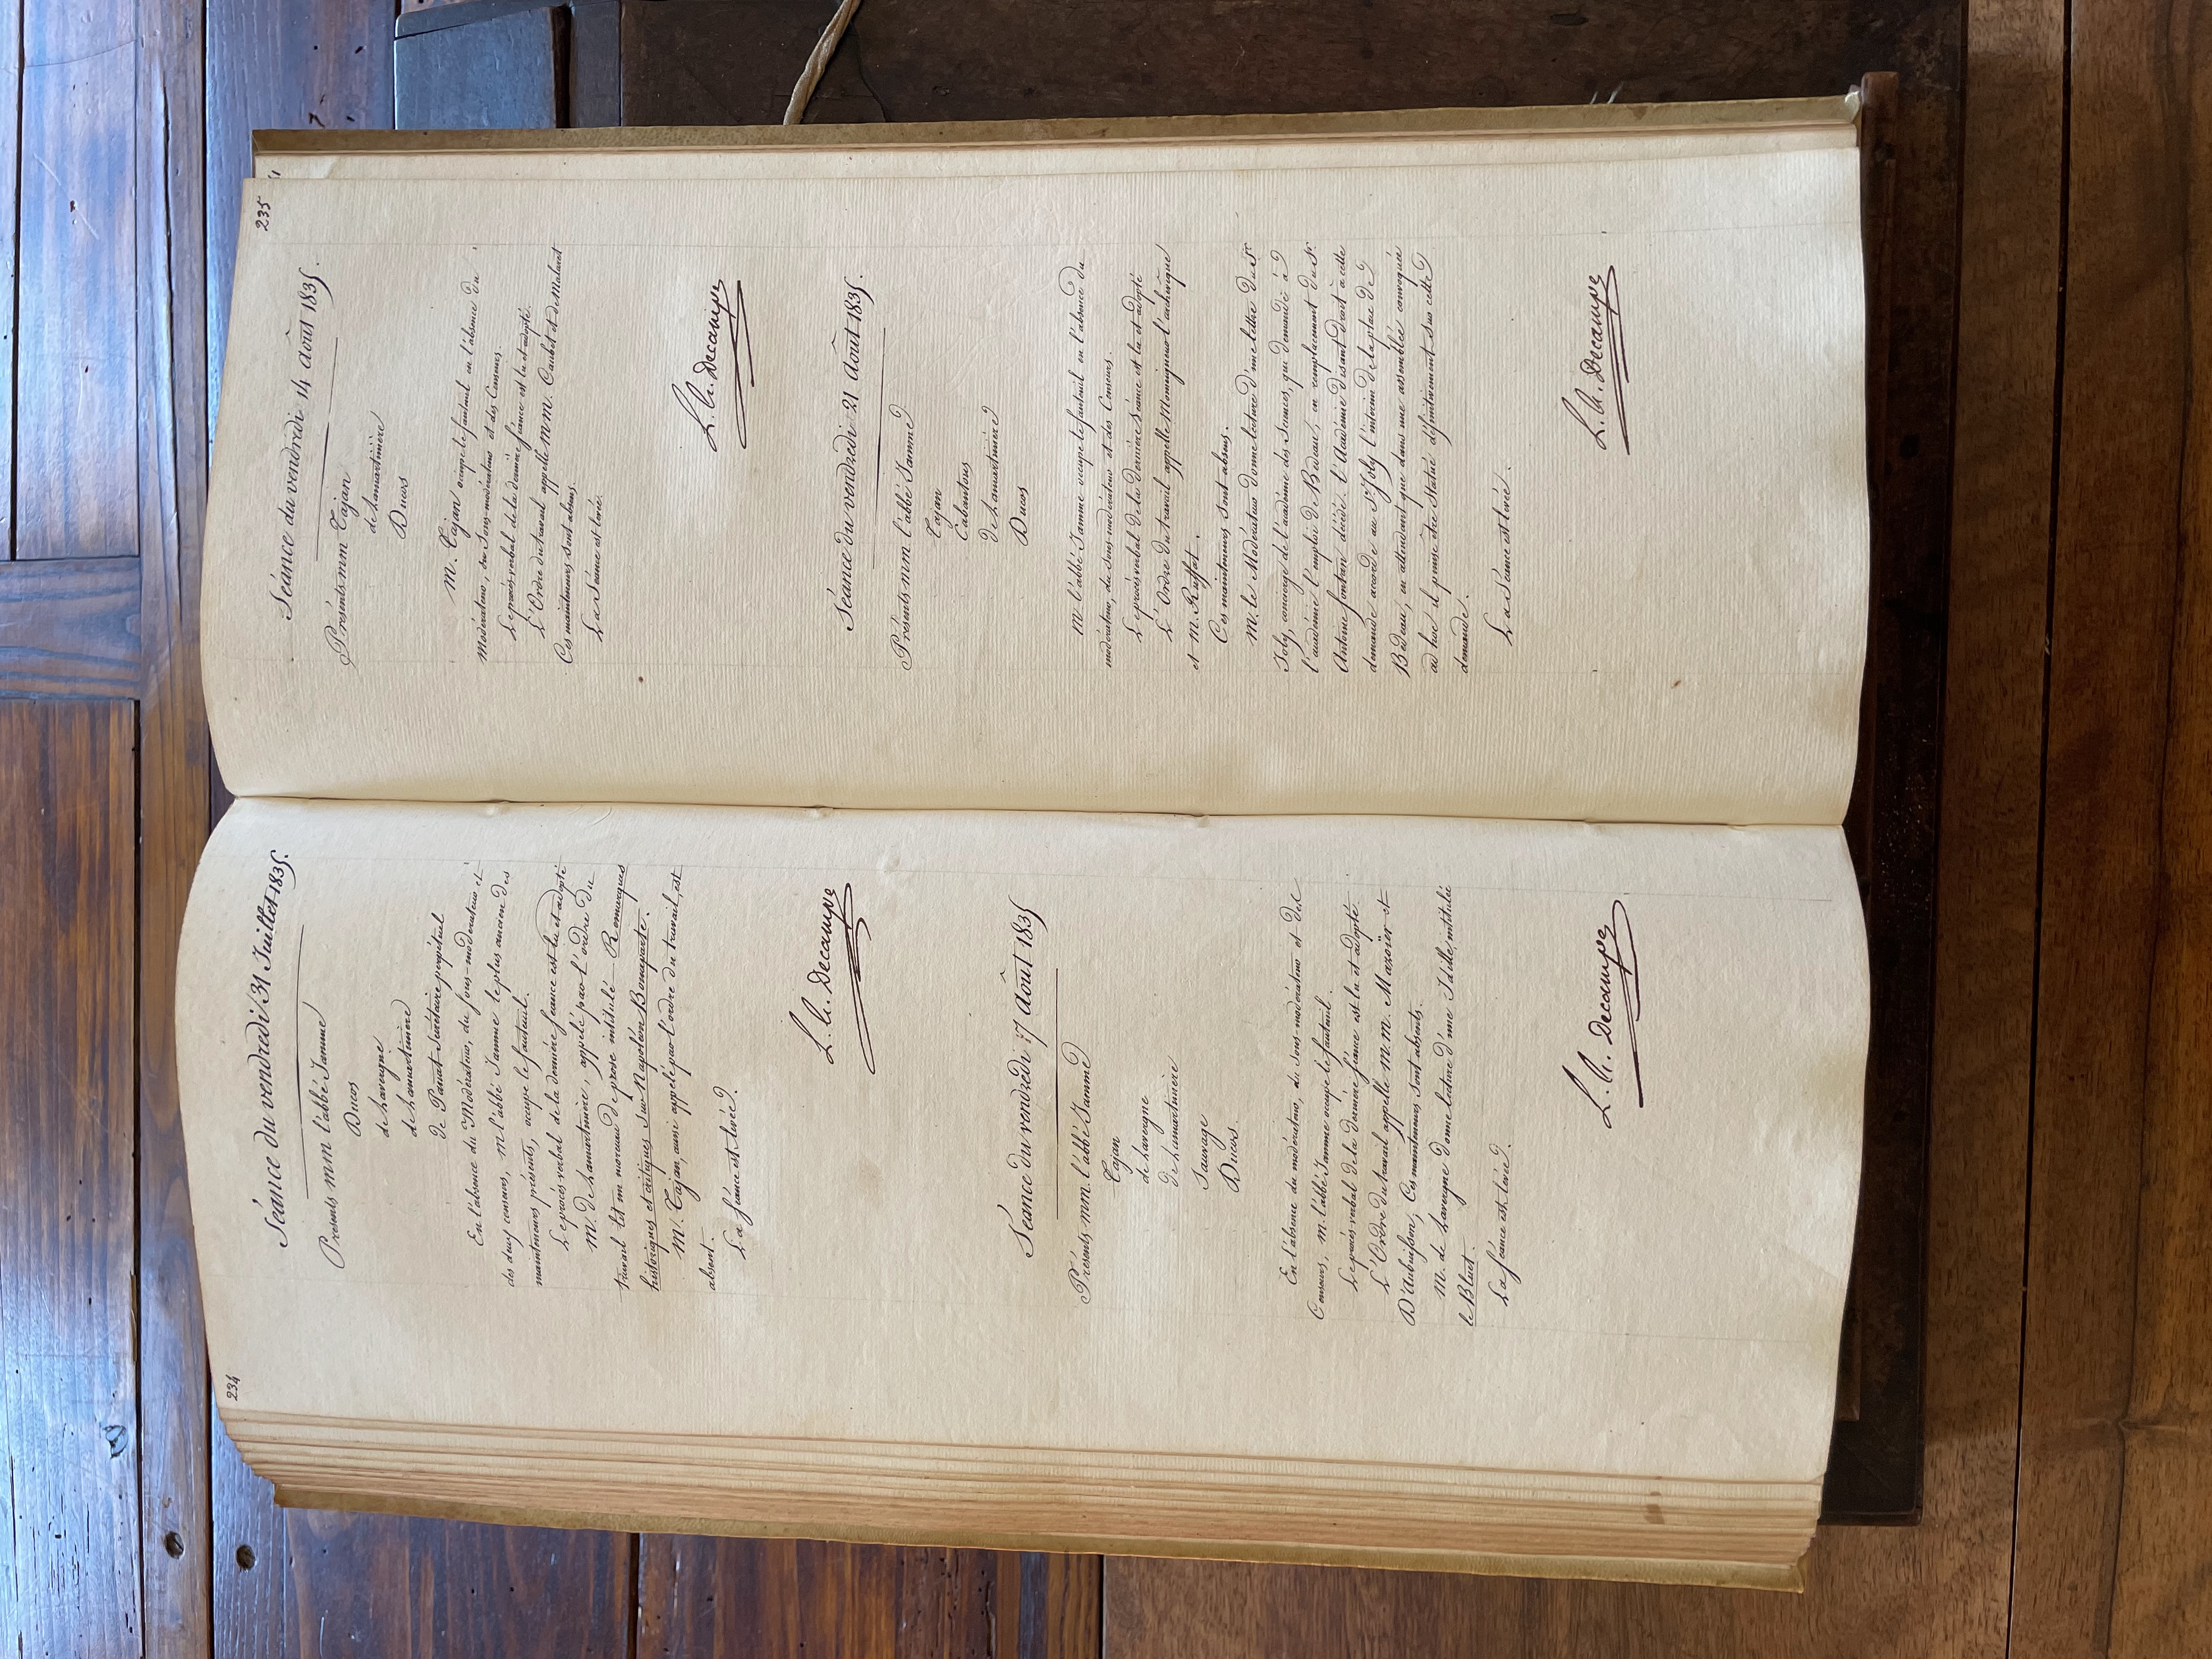 234
Séance du vendredi 31 Juillet 1835.
Présents mm l'abbé Jamme
Ducos
de Lavergne
de Lamartinière
de Panat Secrétaire perpétuel
En l'absence du Modérateur, du sous-modérateur et
des deux censeurs, M. l'abbé Jamme le plus ancien des
mainteneurs présents, occupe le fauteuil.
Le procès-verbal de la dernière séance est lu et adopté
M. de Lamartinière, appelé par l'ordre du
travail lit un morceau de prose intitulé Remarques
historiques et critiques sur Napoléon Bonaparte.
M. Tajan, aussi appelé par l'ordre du travail, est
absent.
La séance est levée.
Séance du vendredi 7 Août 1835
Présents mm. l'abbé Jamme
Tajan
de Lavergne
de Lamartinière
Sauvage
Ducos.
En l'absence du modérateur, du Sous-modérateur et des
Censeurs, M. l'abbé Jamme occupe le fauteuil.
Le procès-verbal de la dernière séance est lu et adopté.
L'Ordre du travail appelle M.M. Mazoïer et
D'Aubuisson, Ces mainteneurs sont absents.
M. de Lavergne donne lecture d'une Idille, intitulée
le Bluet.
La séance est levée.
235
Séance du vendredi 14 Août 1835.
Présents mm Tajan
de Lamartinière
Ducos
M. Tajan occupe le fauteuil en l'absence du
modérateur, du Sous-modérateur et des Censeurs.
Le procès-verbal de la dernière séance est lu et adopté.
L'Ordre du travail appelle MM. Caubet et de Malaret
Ces mainteneurs sont absens.
La Séance est levée.
Séance du vendredi 21 Août 1835.
Présents mm l'abbé Jamme
Tajan
Cabantous
de Lamartinière
Ducos
M. l'abbé Jamme occupe le fauteuil en l'absence du
modérateur, du sous-modérateur et des Censeurs.
Le procès verbal de la dernière séance est lu et adopté
L'Ordre du travail appelle Monseigneur l'archevêque
et M. Ruffat.
Ces mainteneurs sont absens.
M. le Modérateur donne lecture d'une lettre du Sr
Joly, concierge de l'académie des Sciences, qui demande à
l'académie l'emploi de Bedeau, en remplacement du Sr.
Antoine décédé. l'Académie faisant droit à cette
demande accorde au Sr. Joly l'intérim de la place de
Bedeau, en attendant que dans une assemblée convoquée
ad hoc il puisse être statué définitivement sur cette
demande.
La Séance est levée.